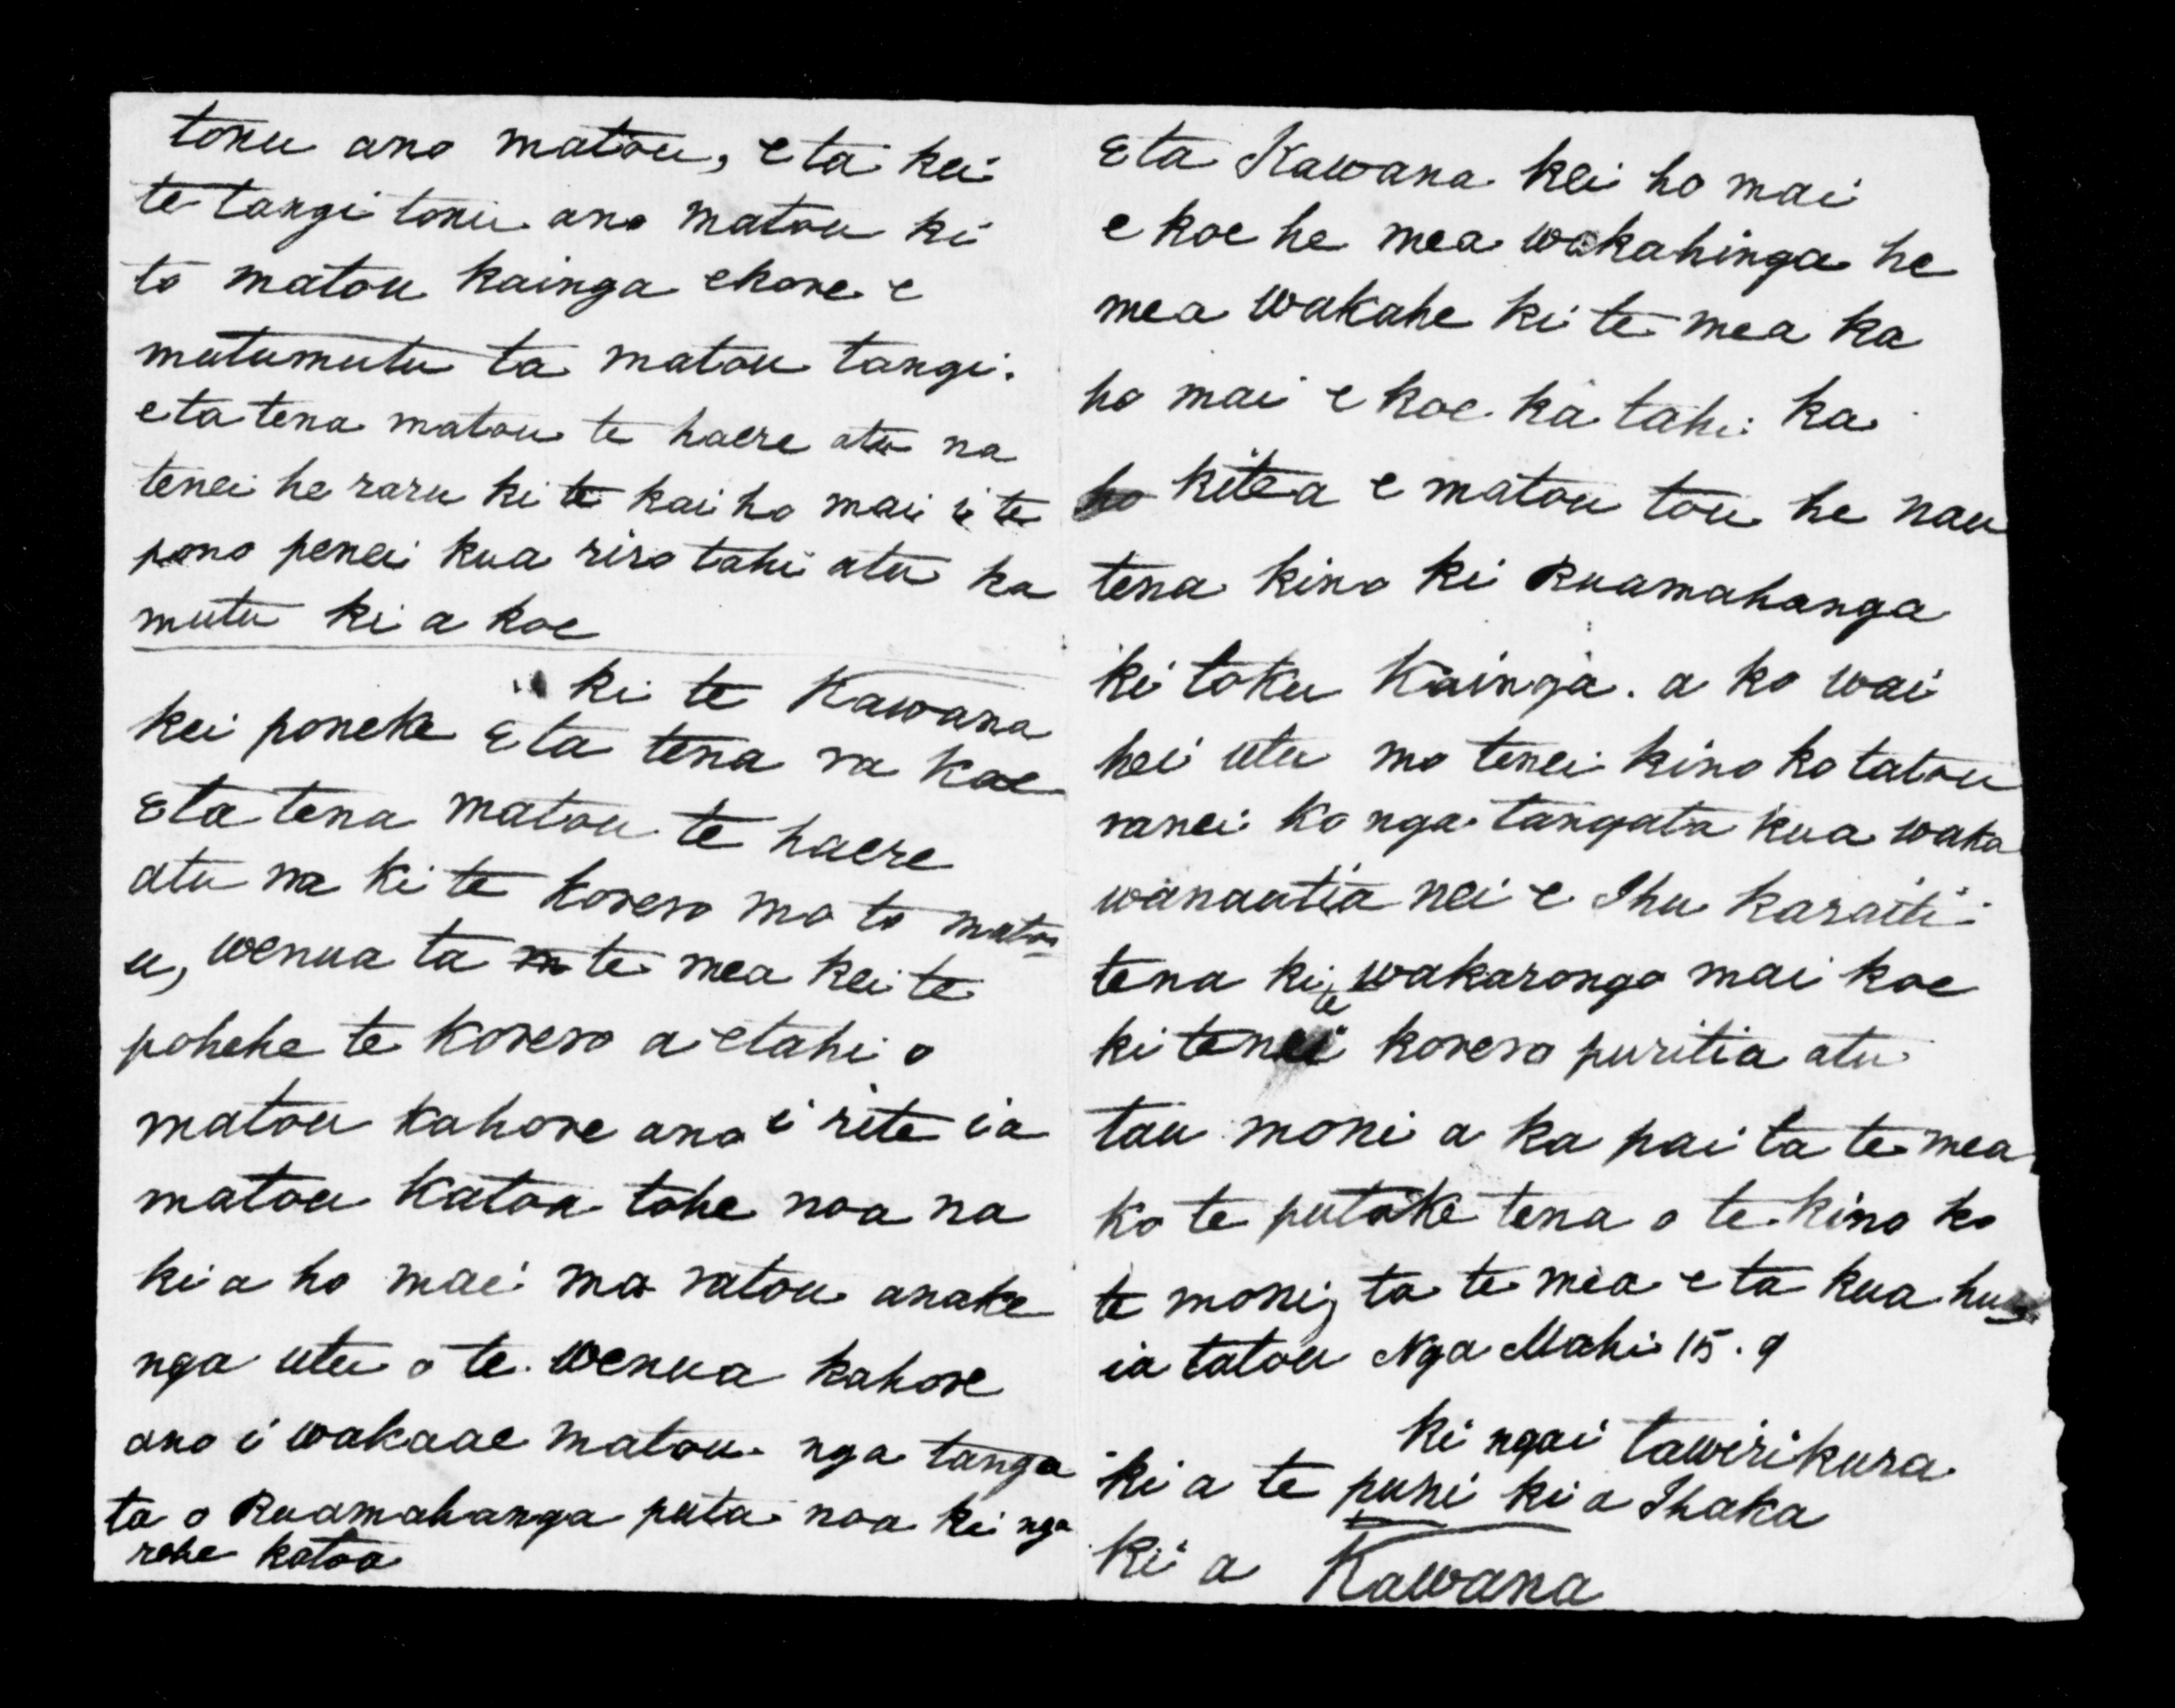 tonu ano matou, eta kei
te tangi tonu ano matou ki
to matou kainga ekore e
mutumutu ta matou tangi.
eta tena matou te haere atu na
tenei he raru ki te kai ho mai i te
pono penei kua riro tahi atu ka
mutu ki a koe
ki te Kawana
kei poneke Eta tena ra koe
Eta tena matou te haere
atu na ki te korero mo to mato
u, wenua ta te mea kei te
pohehe te korero a etahi o
matou kahore ano i rite i a
matou katoa tohe noa na
ki a ho mai ma ratou anake
nga utu o te wenua kahore
ano i wakaae matou nga tanga
ta o Ruamahanga puta noa ki nga
rohe katoa
Eta Kawana kei ho mai
e koe he mea wakahinga he
mea wakahe ki te mea ka
ho mai e koe ka tahi ka
kitea e matou tou he nau
tena kino ki Ruamahanga
ki toku Kainga. a ko wai
hei utu mo tenei kino ko tatou
ranei ko nga tangata kua waka
wanautia nei e Ihu karaiti
tena ki te wakarongo mai koe
ki tenei korero puritia atu
tau moni a ka pai ta te mea
ko te putake tena o te kino ko
te moni, ta te mea eta kua
ia tatou Nga Mahi 15. 9
ki ngai tawirikura
ki a te puni ki a Ihaka
ki a Kawana